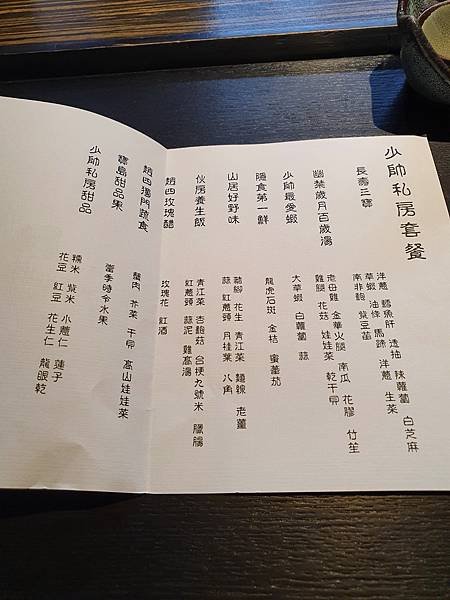 少帥私房套餐
長壽三寶
洋蔥 鱈魚肝 透抽 辣蘿蔔 白芝麻
草蝦 油條 馬蹄 洋蔥 生菜
南非鮑 豆苗
幽禁歲月百歲湯
老母雞 金華火腿 南瓜 花膠 竹笙
雞腿 花菇 娃娃菜 乾干貝
少帥最愛蝦
大草蝦 白蘿蔔 蒜
隱食第一鮮
龍虎石斑 金桔 蜜蕃茄
山居好野味
花生 青江菜 麵線 老薑
蒜 紅蔥頭 月桂葉 八角
伙房養生飯
青江菜 杏鮑菇 台梗九號米 臘腸
紅蔥頭 蒜泥 雞高湯
趙四玫瑰醋
玫瑰花 紅酒
趙四獨門蔬食
蟹肉 芥菜 干貝 高山娃娃菜
寶島甜品果
當季時令水果
少帥私房甜品
糯米 紫米 小薏仁 蓮子
花豆 紅豆 花生仁 龍眼乾